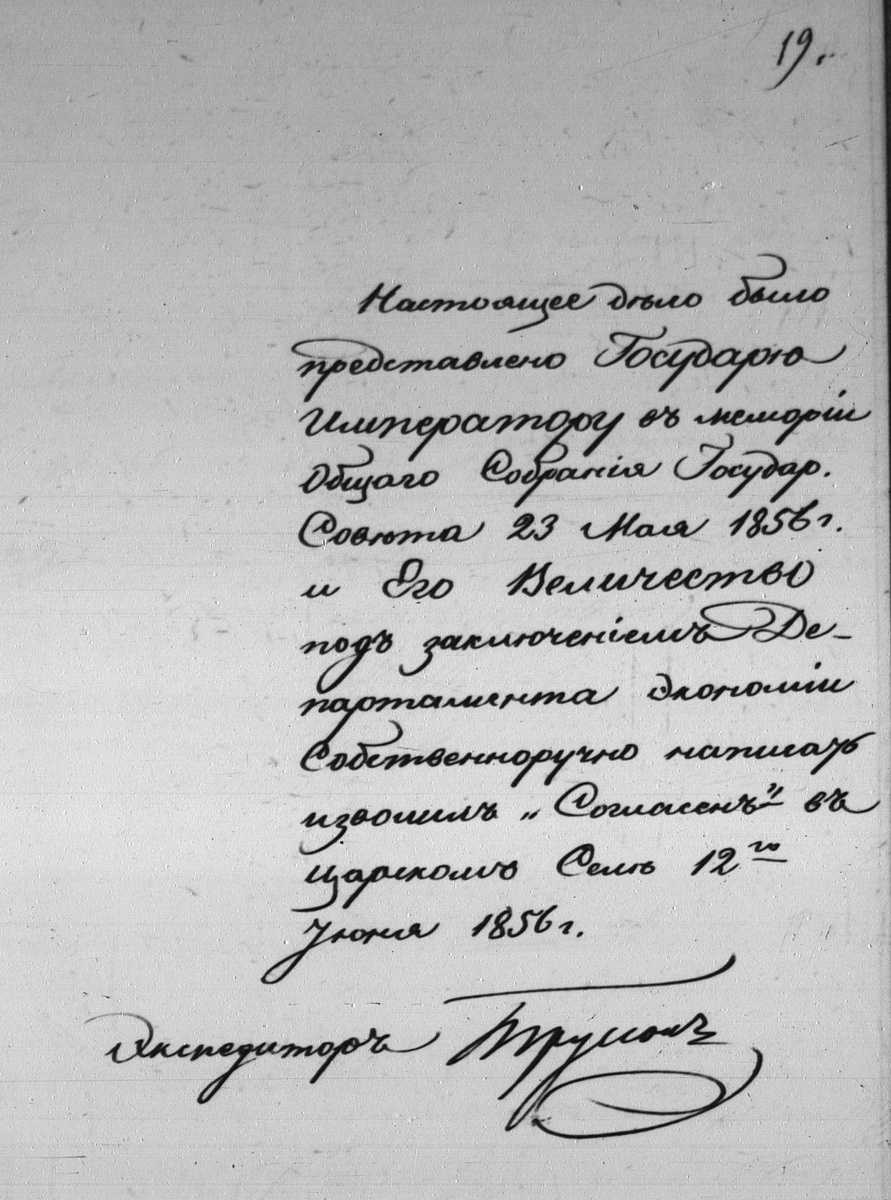 19.
Настоящее дѣло было
представлено Государю
Императору въ меморіи
Общаго Собранія Государ.
Совѣта 23 Мая 1856 г.
и Его Величество
подъ заключеніемъ Де-
партамента Экономіи
Собственноручно написать
изволилъ „Согласенъ" въ
Царскомъ Селѣ 12го
Іюня 1856 г.
Экспедиторъ